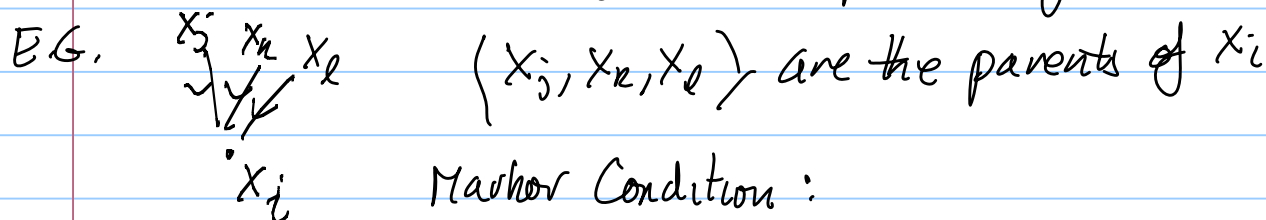 E.G. Xj Xk Xl (Xj, Xk, Xl) are the parents of Xi
Xi Markov Condition: